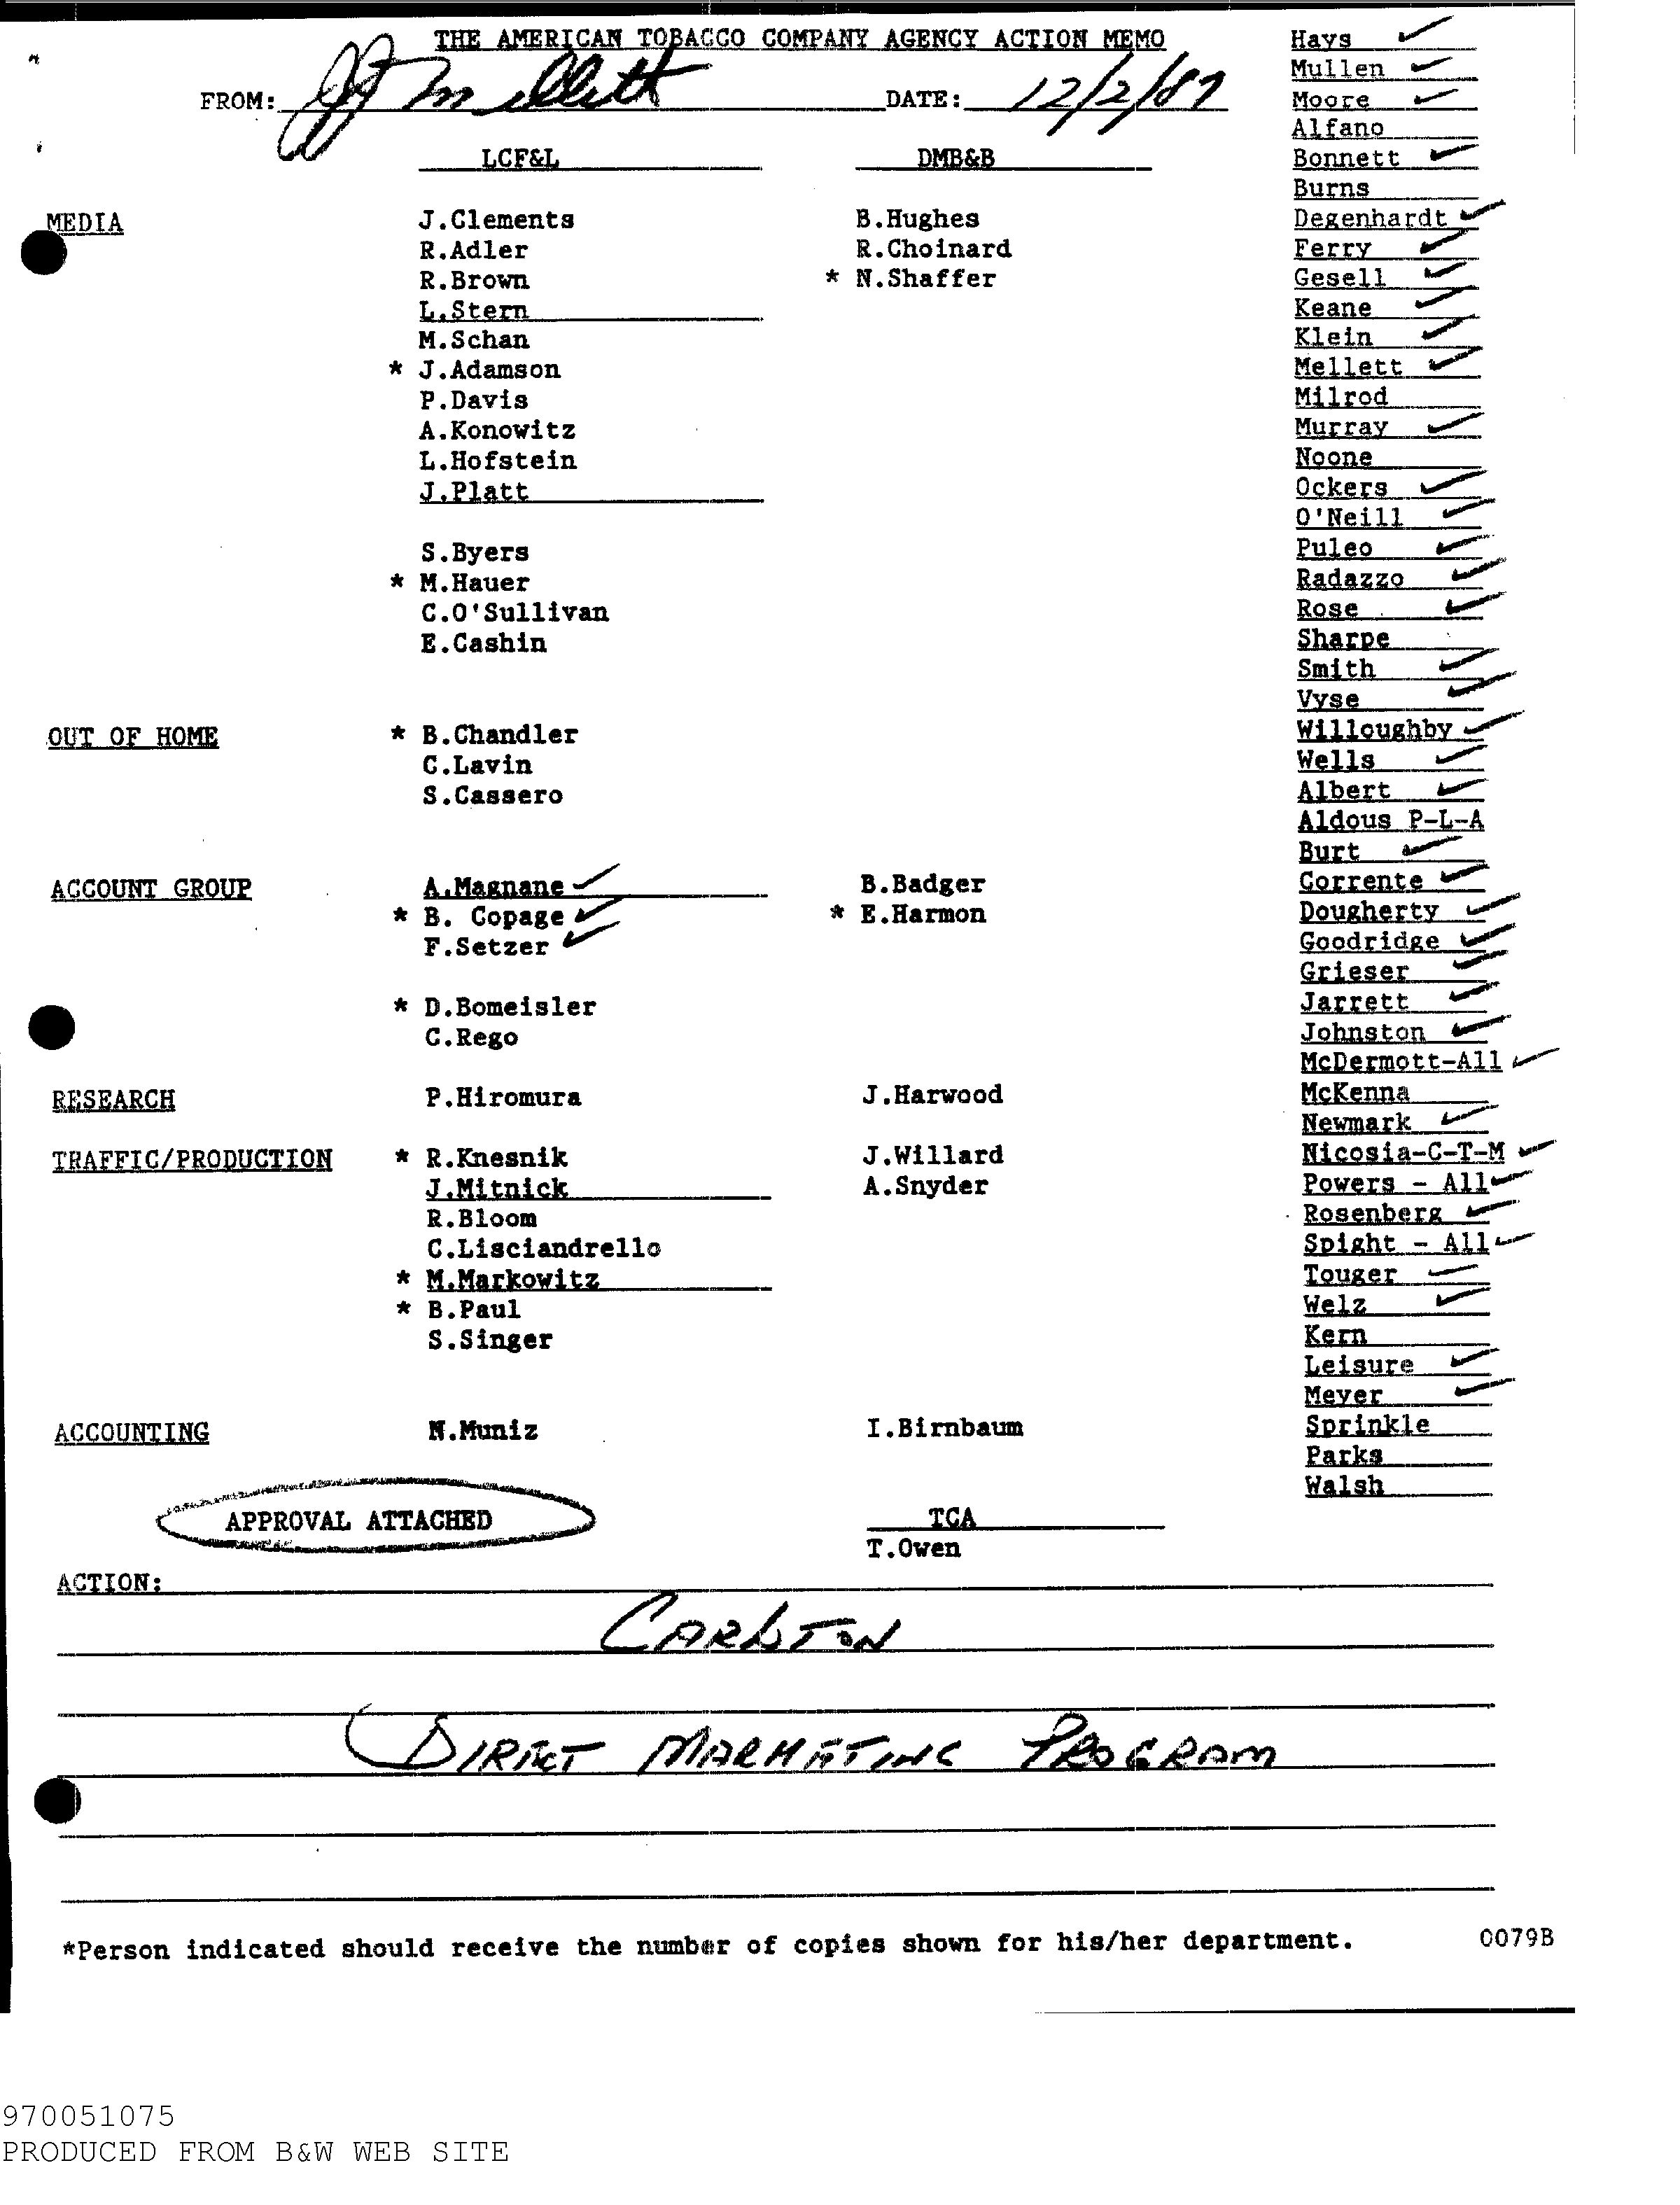 THE AMERICAN TOBACCO COMPANY AGENCY ACTION MEMO
FROM: DATE: 12/2/87
LCF&L DMB&B
MEDIA J.Clements B.Hughes
R.Adler R.Choinard
R.Brown * N.Shaffer
L.Stern
M.Schan
* J.Adamson
P.Davis
A.Konowitz
L.Hofstein
J.Platt
S.Byers
* M.Hauer
C.O'Sullivan
E.Cashin
OUT OF HOME * B.Chandler
C.Lavin
S.Cassero
ACCOUNT GROUP A.Magnane ✓ B.Badger
* B. Copage ✓ * E.Harmon
F.Setzer ✓
* D.Bomeisler
C.Rego
RESEARCH P.Hiromura J.Harwood
TRAFFIC/PRODUCTION * R.Knesnik J.Willard
J.Mitnick A.Snyder
R.Bloom
C.Lisciandrello
* M.Markowitz
* B.Paul
S.Singer
ACCOUNTING N.Muniz I.Birnbaum
APPROVAL ATTACHED TCA
T.Owen
Hays ✓
Mullen ✓
Moore ✓
Alfano
Bonnett ✓
Burns
Degenhardt ✓
Ferry ✓
Gesell ✓
Keane ✓
Klein ✓
Mellett ✓
Milrod
Murray ✓
Noone
Ockers ✓
O'Neill ✓
Puleo ✓
Radazzo ✓
Rose ✓
Sharpe
Smith ✓
Vyse ✓
Willoughby ✓
Wells ✓
Albert ✓
Aldous P-L-A
Burt ✓
Corrente ✓
Dougherty ✓
Goodridge ✓
Grieser ✓
Jarrett ✓
Johnston ✓
McDermott-All ✓
McKenna
Newmark ✓
Nicosia-C-T-M ✓
Powers - All ✓
Rosenberg ✓
Spight - All ✓
Touger ✓
Welz ✓
Kern
Leisure ✓
Meyer ✓
Sprinkle
Parks
Walsh
ACTION:
CARLTON
DIRECT MARKETING PROGRAM
*Person indicated should receive the number of copies shown for his/her department. 0079B
970051075
PRODUCED FROM B&W WEB SITE